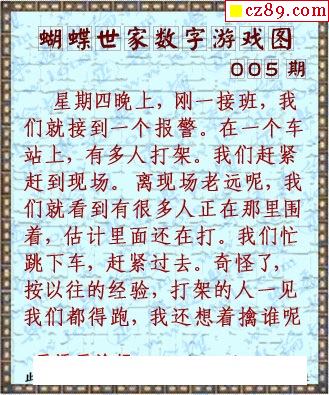 cz89.com
蝴蝶世家数字游戏图
005 期
星期四晚上，刚一接班，我
们就接到一个报警。在一个车
站上，有多人打架。我们赶紧
赶到现场。离现场老远呢，我
们就看到有很多人正在那里围
着，估计里面还在打。我们忙
跳下车，赶紧过去。奇怪了，
按以往的经验，打架的人一见
我们都得跑，我还想着擒谁呢